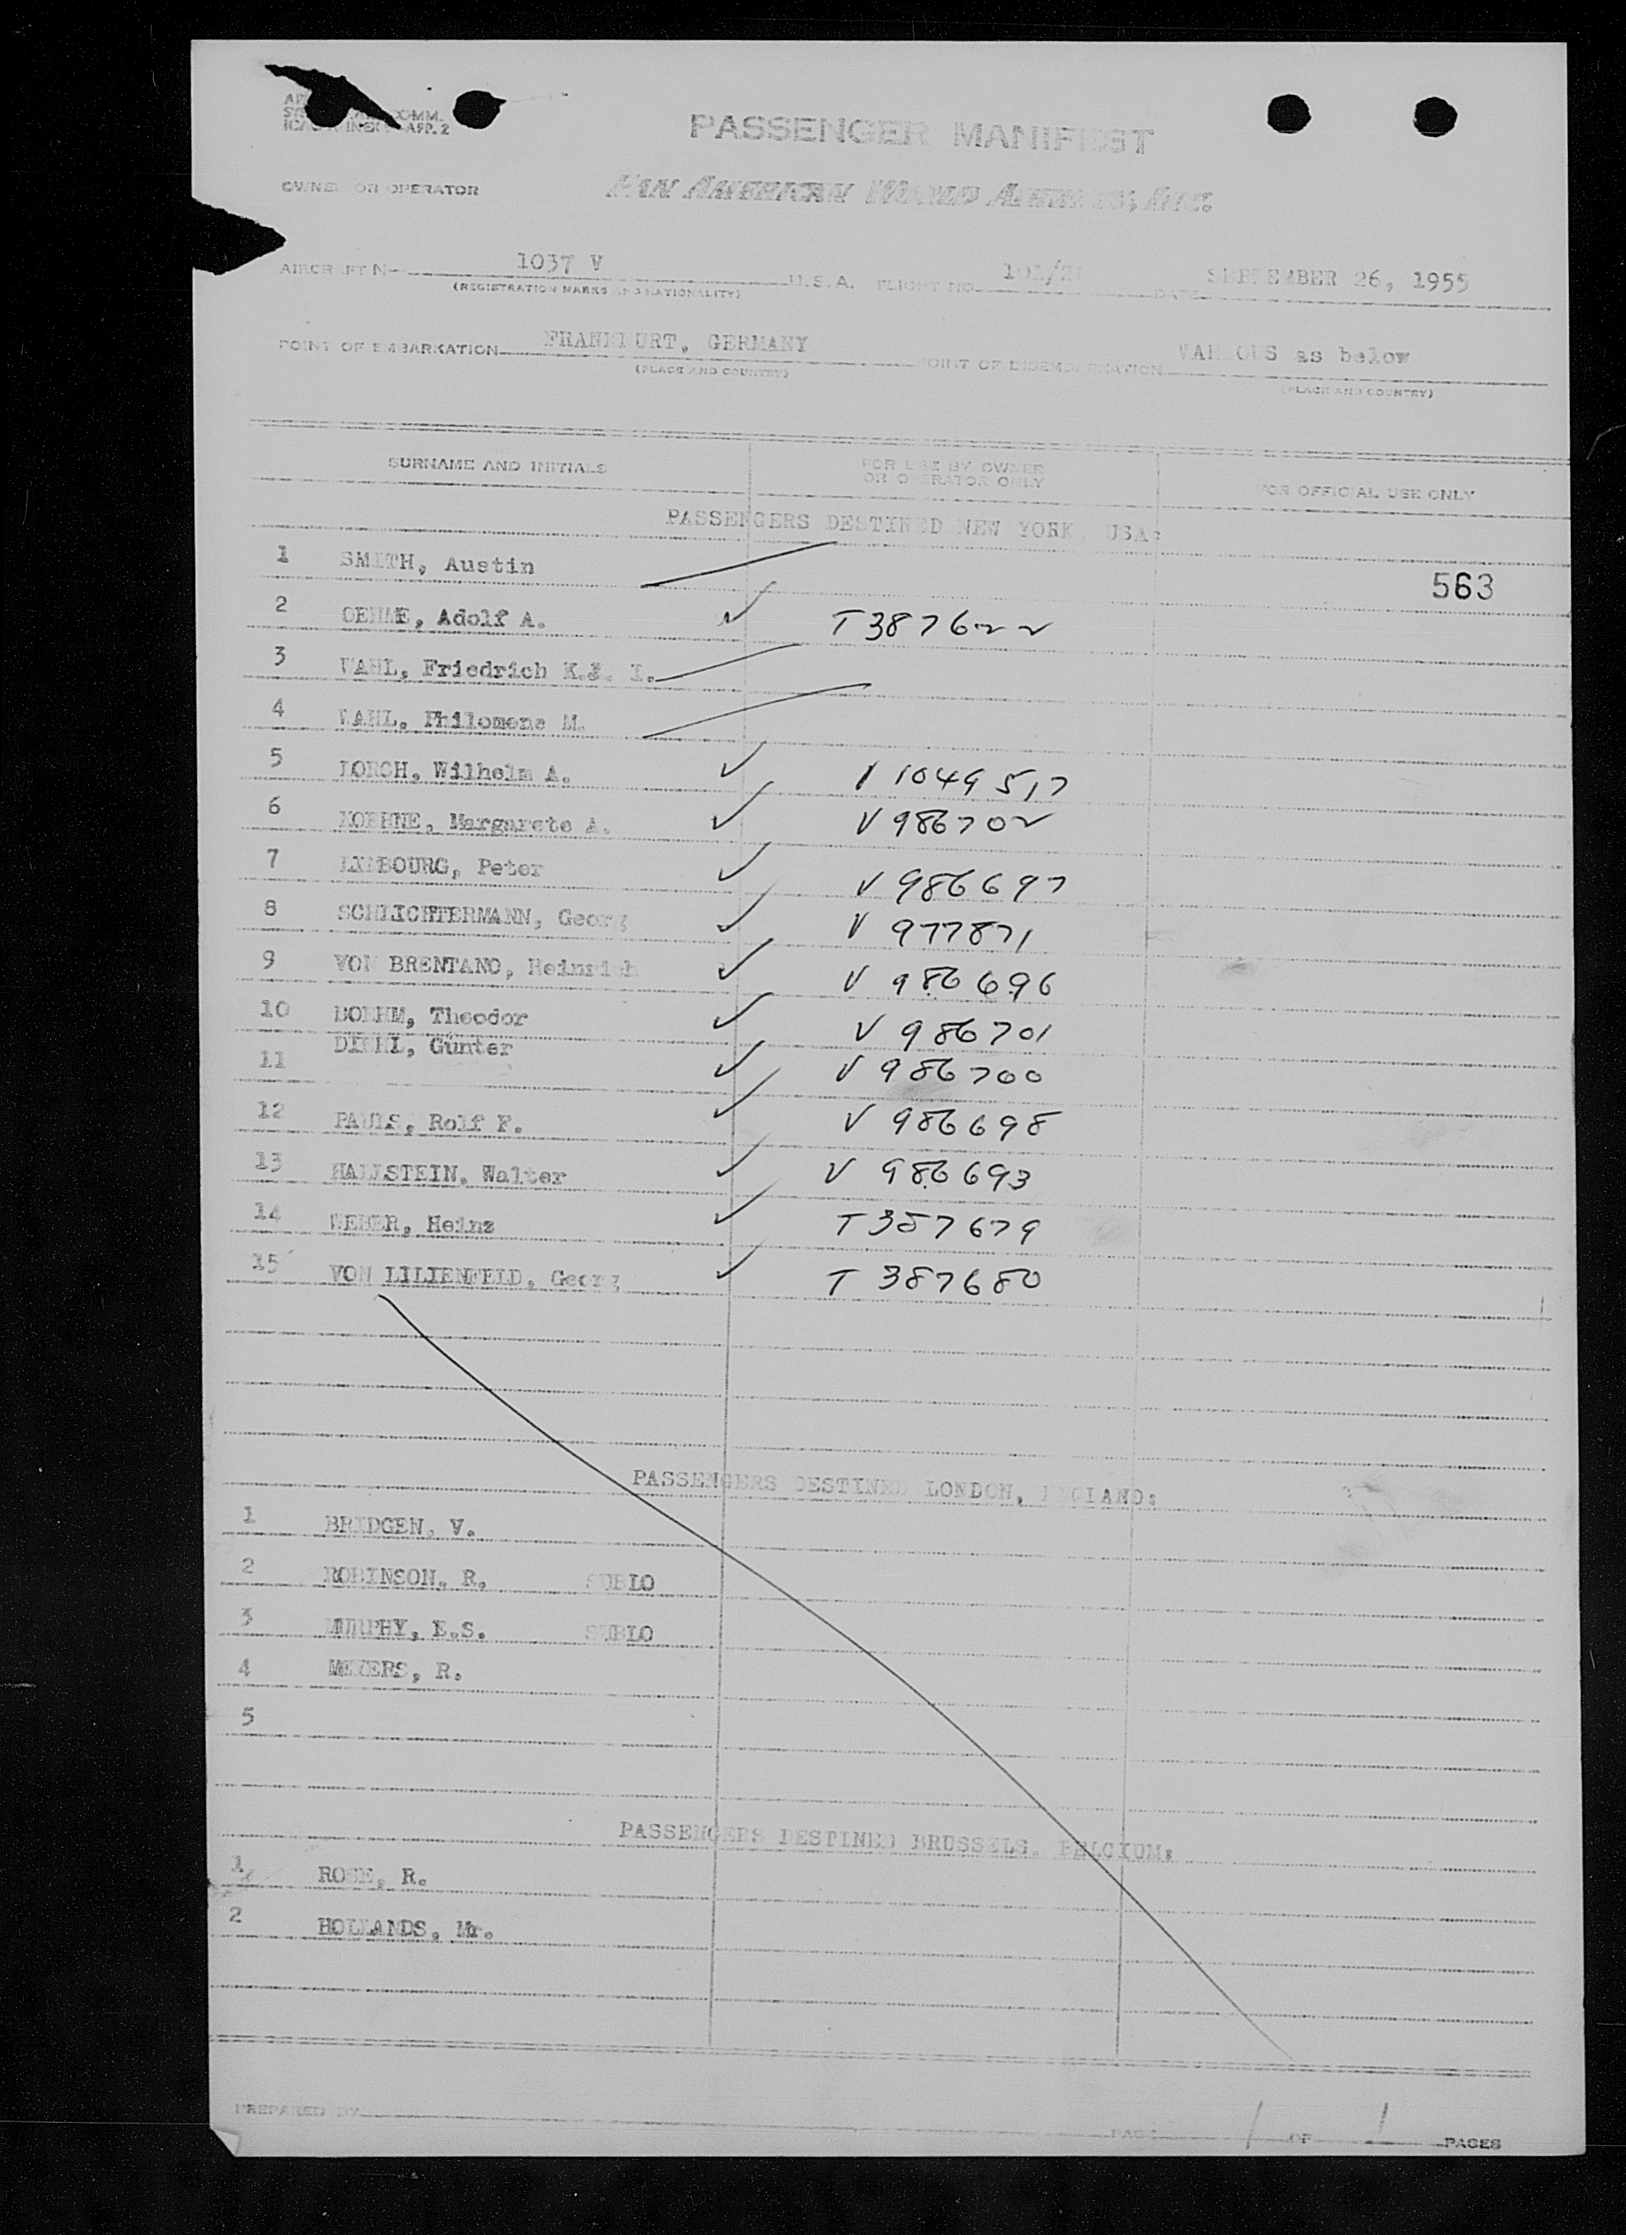 COMM.
APP. 2
PASSENGER MANIFEST
OWNER OR OPERATOR
PAN AMERICAN WORLD AIRWAYS, INC.
AIRCRAFT N- 1037 V U.S.A. FLIGHT NO. DATE SEPTEMBER 26, 1955
(REGISTRATION MARKS AND NATIONALITY)
POINT OF EMBARKATION FRANKFURT, GERMANY POINT OF DISEMBARKATION VARIOUS as below
(PLACE AND COUNTRY) (PLACE AND COUNTRY)
SURNAME AND INITIALS FOR USE BY OWNER OR OPERATOR ONLY FOR OFFICIAL USE ONLY
PASSENGERS DESTINED NEW YORK, USA:
1 SMITH, Austin 563
2 OEHME, Adolf A. T 387622
3 WAHL, Friedrich K. I.
4 WAHL, Philomena M.
5 LORCH, Wilhelm A. 1049517
6 KOEHNE, Margarete A. V 986702
7 LIMBOURG, Peter V 986697
8 SCHLICHTERMANN, Georg V 977871
9 VON BRENTANO, Heinrich V 986696
10 BOEHM, Theodor V 986701
11 DIEHL, Günter V 986700
12 PAULS, Rolf F. V 986698
13 HALLSTEIN, Walter V 986693
14 WEBER, Heinz T 387679
15 VON LILIENFELD, Georg T 387680
PASSENGERS DESTINED LONDON, ENGLAND:
1 BRIDGEN, V.
2 ROBINSON, R. SUBLO
3 MURPHY, E.S. SUBLO
4 MEYERS, R.
5
PASSENGERS DESTINED BRUSSELS, BELGIUM:
1 ROSE, R.
2 HOLLANDS, Mr.
PREPARED BY PAGE 1 OF 1 PAGES